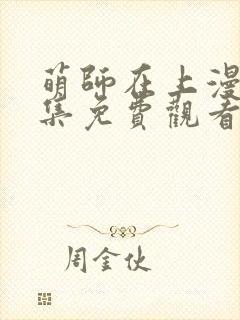 萌師在上漫
集免費觀看
周金伙